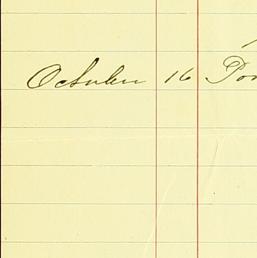 October 16